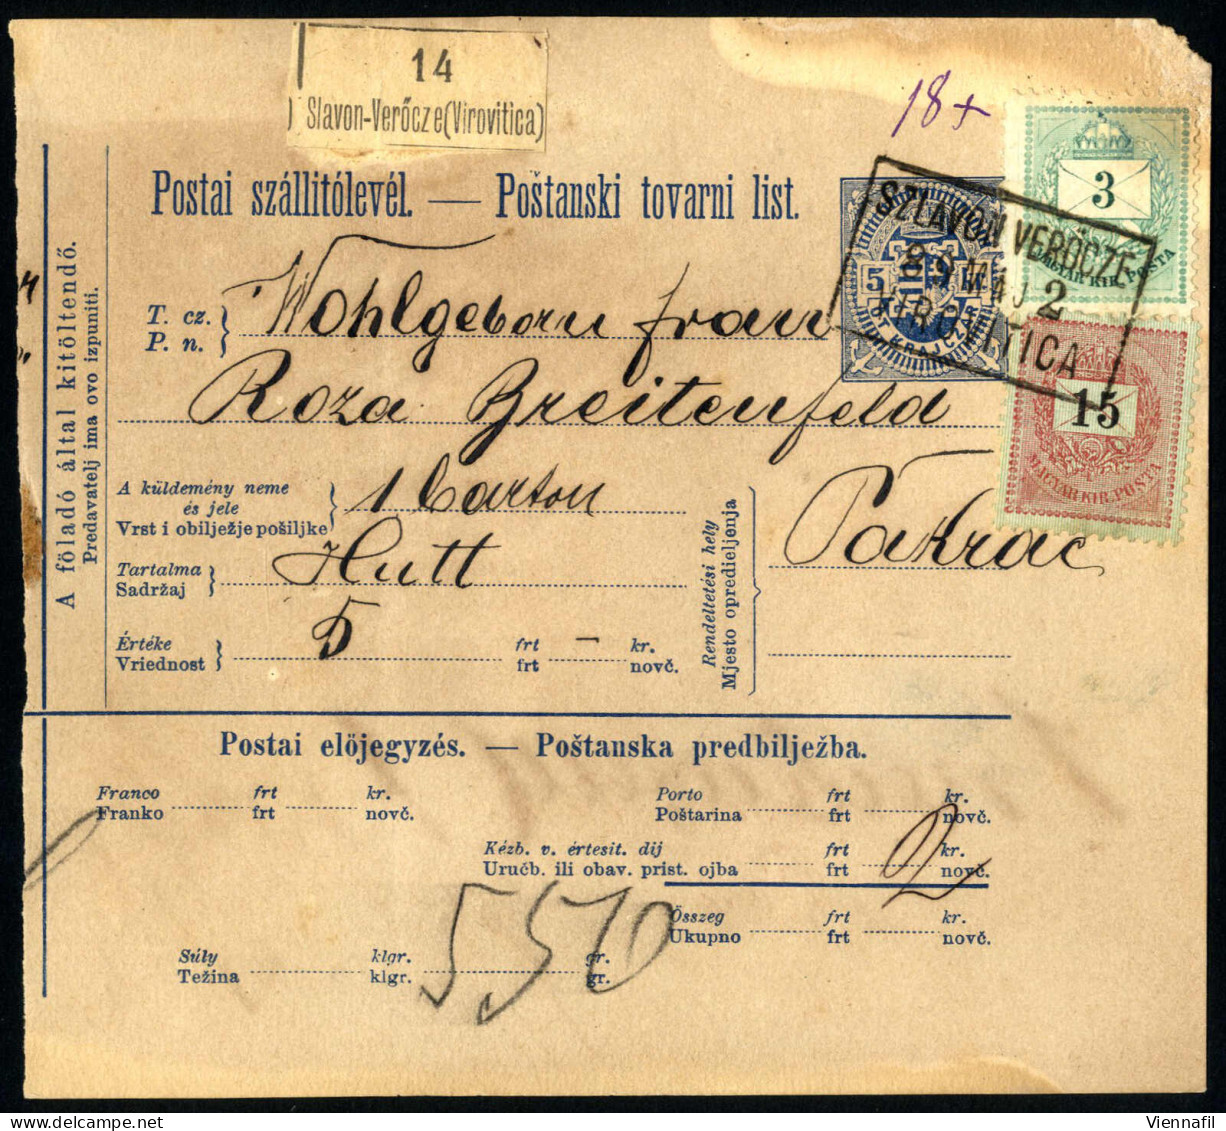 14
Slavon-Verőcze(Virovitica)
18+
Postai szállitólevél. — Poštanski tovarni list.
3
MAGYAR KIR. POSTA
SZLAVON VERŐCZE
89 MÁJ 2
VIROVITICA
5 kr.
PET KRAJCZAR
15
MAGYAR KIR. POSTA
A föladó által kitöltendő.
Predavatelj ima ovo izpuniti.
T. cz.
P. n.
Wohlgeborn frau
Roza Breitenfeld
A küldemény neme
és jele
Vrst i obilježje pošiljke
1 Carton
Tartalma
Sadržaj
Hutt
Értéke frt kr.
Vriednost frt novč.
5 —
Rendeltetési hely
Mjesto opredieljenja
Pakrac
Postai előjegyzés. — Poštanska predbilježba.
Franco frt kr.
Franko frt novč.
Porto frt kr.
Poštarina frt novč.
Kézb. v. értesit. dij frt kr.
Uručb. ili obav. prist. ojba frt novč.
2
Összeg frt kr.
Ukupno frt novč.
Súly klgr. gr.
Težina klgr. gr.
5,510
Viennafil